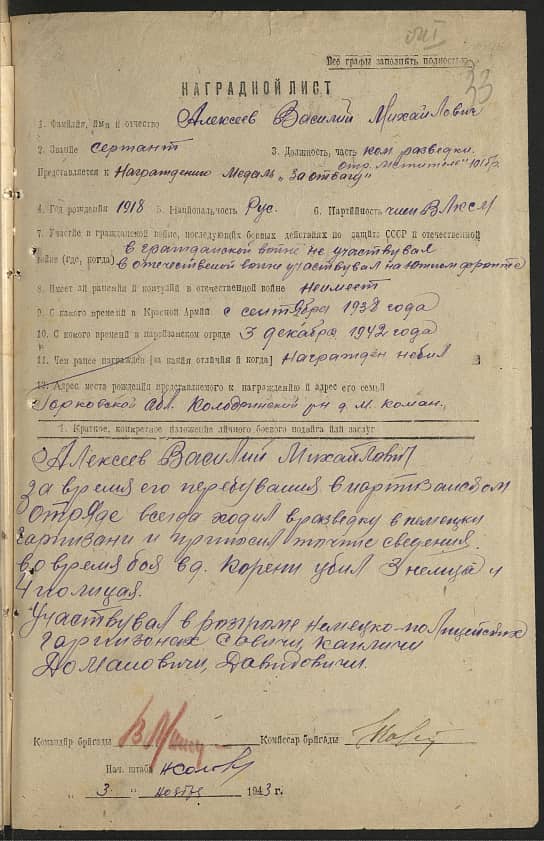 Все графы заполнять полностью
33
НАГРАДНОЙ ЛИСТ
1. Фамилия, имя и отчество Алексеев Василий Михайлович
2. Звание сержант 3. Должность, часть ком разведки.
отр. "Мститель" 1915г.
Представляется к Награждению Медаль "За отвагу"
4. Год рождения 1918 5. Национальность Рус. 6. Партийность член ВЛКСМ
7. Участие в гражданской войне, последующих боевых действиях по защите СССР и отечественной
войне (где, когда) в гражданской войне не участвувал
в отечествеой войне участвувал на Южном фронте
8. Имеет ли ранения и контузии в отечественной войне неимеет
9. С какого времени в Красной Армии с сентября 1938 года
10. С какого времени в партизанском отряде 3 декабря 1942 года
11. Чем ранее награжден [за какия отличия и когд] Награжден небыл
12. Адрес места рождения представляемого к награждению и адрес его семьи
Горковской обл. рн д. М.
1. Краткое, конкретное изложение личного боевого подвига или заслуг
Алексеев Василий Михайлович
за время его перебувания в партизанском
отряде всегда ходил вразведку в немецки
гарнизани и приносил точние сведения.
во время боя в д. Корени убил 3 немца и
4 полицая.
Участвувал в розгроме немецко-полицейских
гарнизонах Савичи, Капличи
Домановичи, Давидовичи.
Командир бригады Комиссар бригады
Нач. штаба
3 " ноября 1943 г.